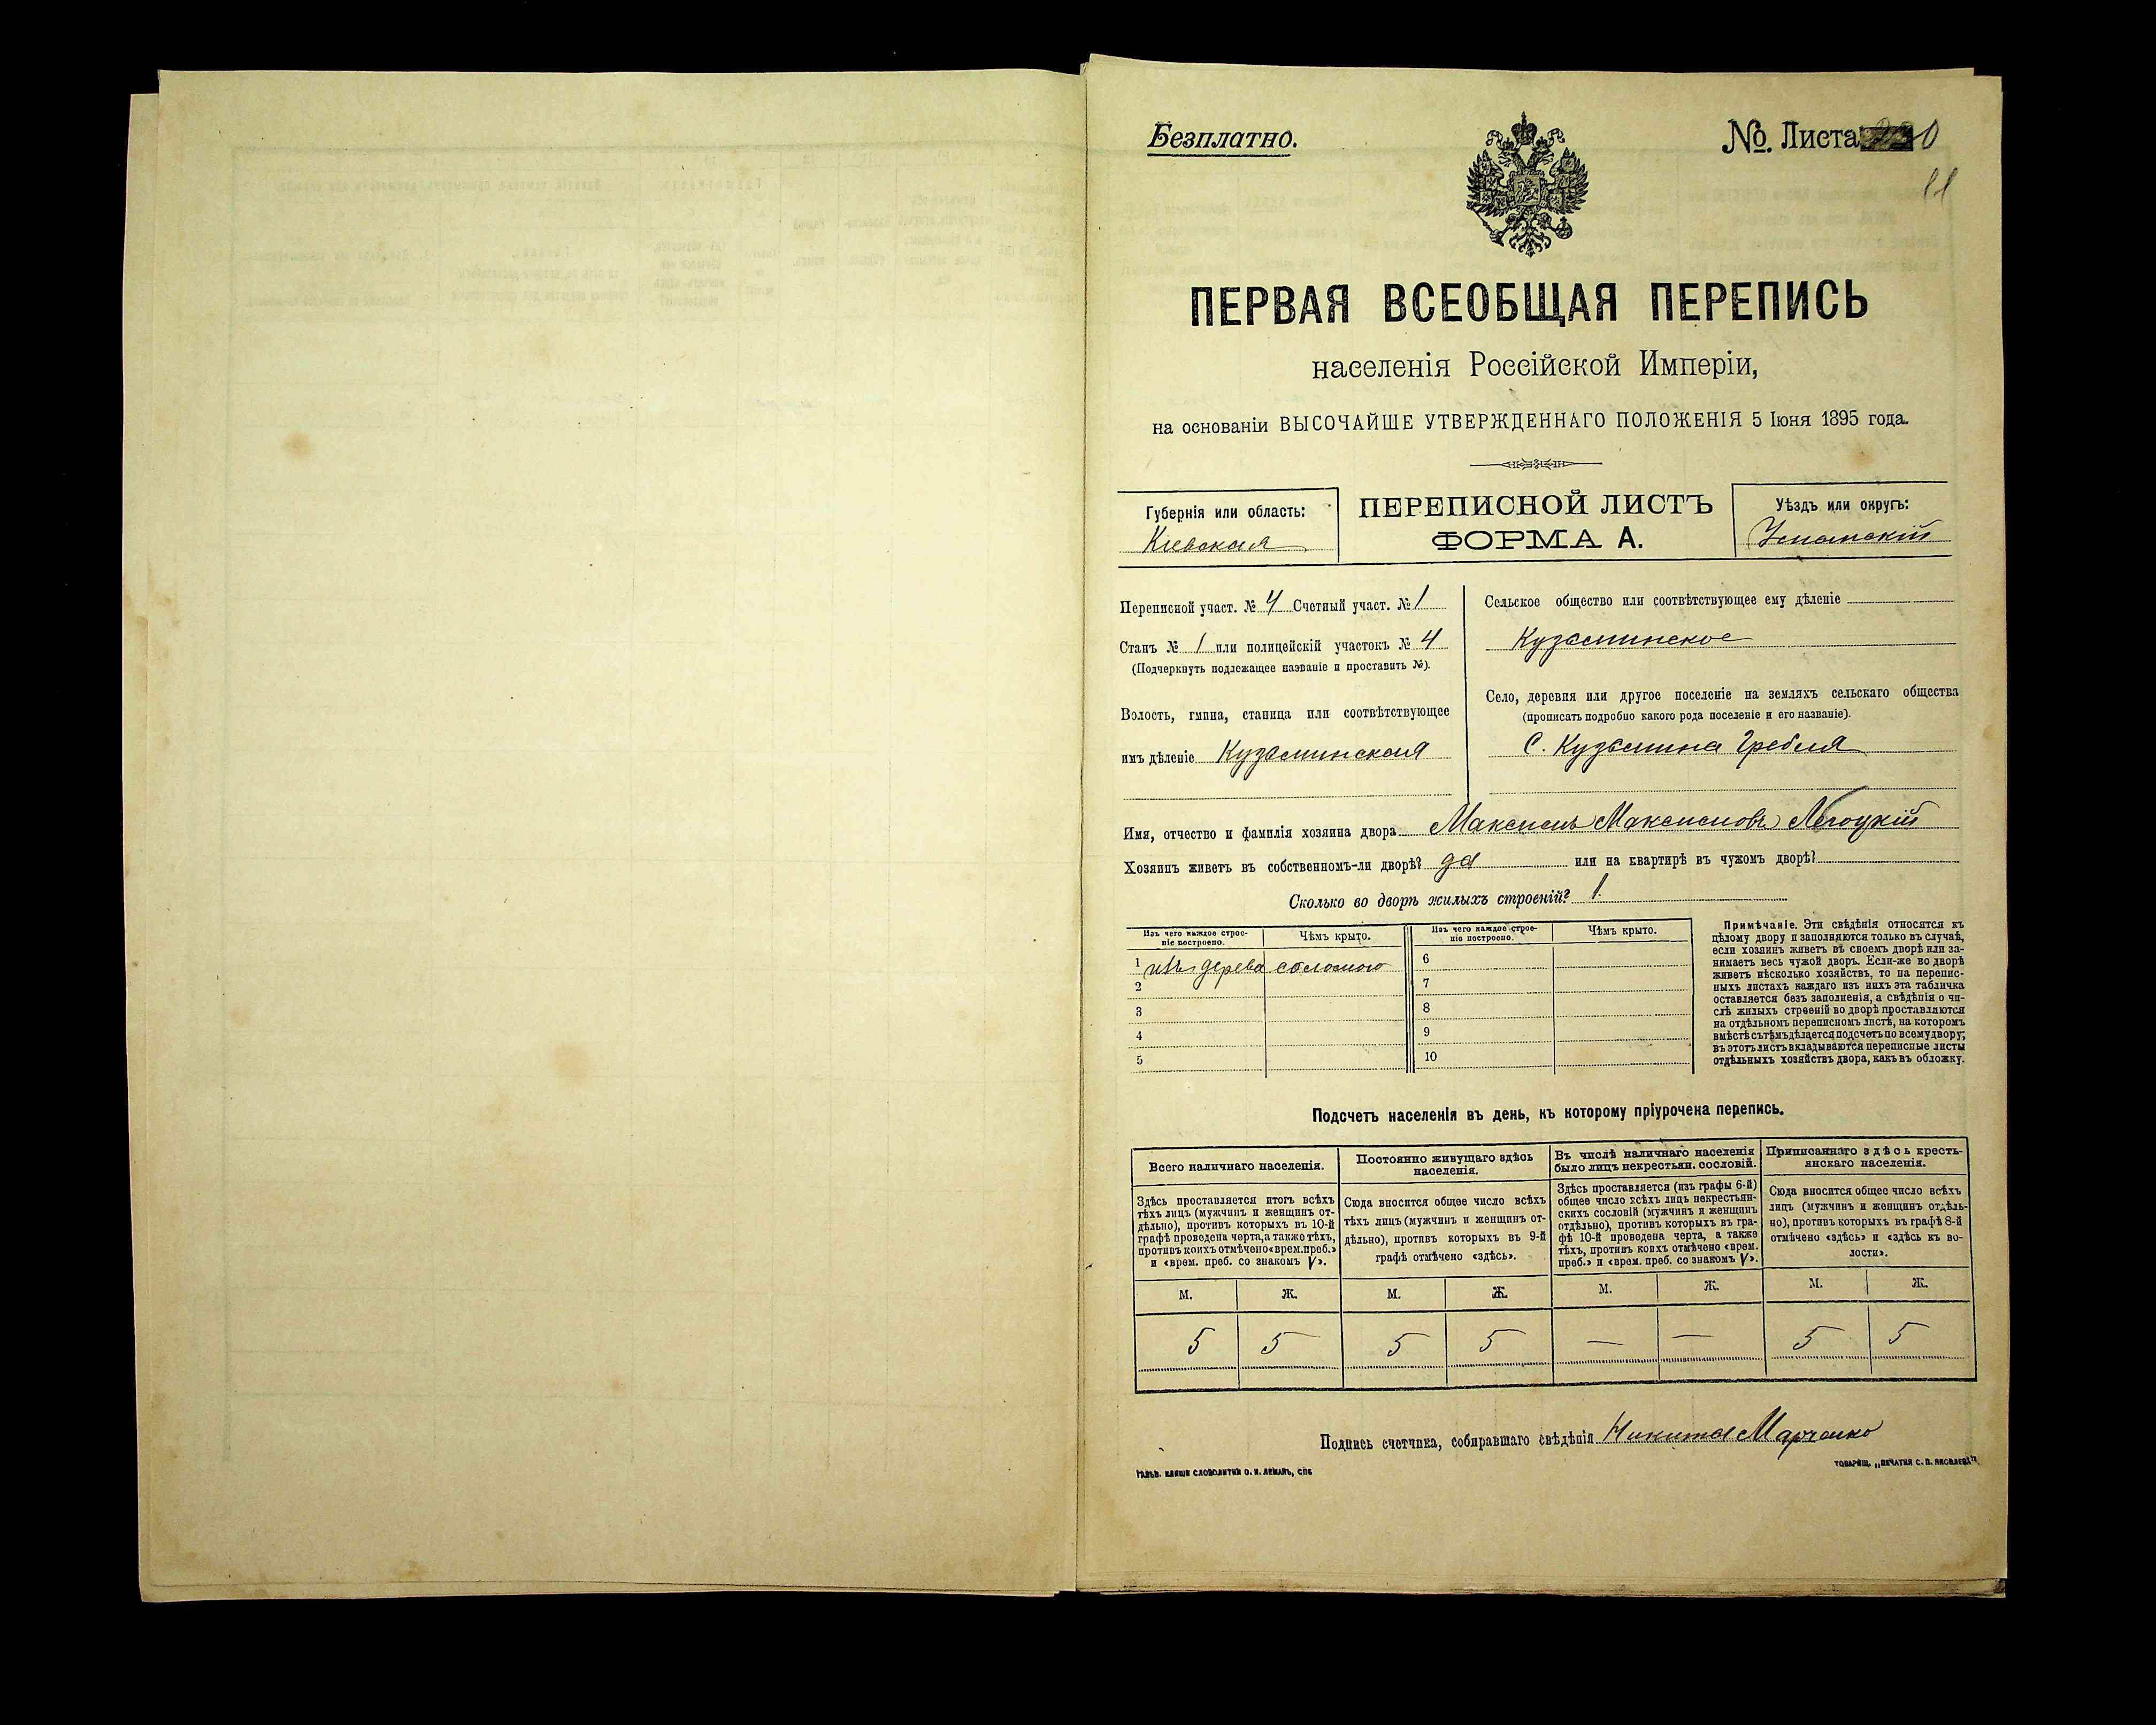 Безплатно.
№. Листа 0
11
ПЕРВАЯ ВСЕОБЩАЯ ПЕРЕПИСЬ
населенія Россійской Имперіи,
на основаніи ВЫСОЧАЙШЕ УТВЕРЖДЕННАГО ПОЛОЖЕНІЯ 5 Іюня 1895 года.
Губернія или область:
Кіевская
ПЕРЕПИСНОЙ ЛИСТЪ
ФОРМА А.
Уѣздъ или округъ:
Уманскій
Переписной участ. № 4 Счетный участ. № 1
Станъ № 1 или полицейскій участокъ № 4
(Подчеркнуть подлежащее названіе и проставить №).
Волость, гмина, станица или соотвѣтствующее
имъ дѣленіе Кузьминская
Сельское общество или соотвѣтствующее ему дѣленіе
Кузьминское
Село, деревня или другое поселеніе на земляхъ сельскаго общества
(прописать подробно какого рода поселеніе и его названіе).
С. Кузьмина Гребля
Имя, отчество и фамилія хозяина двора Максимъ Максимовъ
Хозяинъ живетъ въ собственномъ-ли дворѣ? да или на квартирѣ въ чужомъ дворѣ?
Сколько во дворѣ жилыхъ строеній? 1.
Изъ чего каждое строе-
ніе построено.
Чѣмъ крыто.
Изъ чего каждое строе-
ніе построено.
Чѣмъ крыто.
1 изъ дерева соломою 6
2 7
3 8
4 9
5 10
Примѣчаніе. Эти свѣдѣнія относятся къ
цѣлому двору и заполняются только въ случаѣ,
если хозяинъ живетъ въ своемъ дворѣ или за-
нимаетъ весь чужой дворъ. Если-же во дворѣ
живетъ нѣсколько хозяйствъ, то на перепис-
ныхъ листахъ каждаго изъ нихъ эта табличка
оставляется безъ заполненія, а свѣдѣнія о чи-
слѣ жилыхъ строеній во дворѣ проставляются
на отдѣльномъ переписномъ листѣ, на которомъ
вмѣстѣ съ тѣмъ дѣлается подсчетъ по всему двору;
въ этотъ листъ вкладываются переписные листы
отдѣльныхъ хозяйствъ двора, какъ въ обложку.
Подсчетъ населенія въ день, къ которому пріурочена перепись.
Всего наличнаго населенія.
Постоянно живущаго здѣсь
населенія.
Въ числѣ наличнаго населенія
было лицъ некрестьян. сословій.
Приписаннаго здѣсь кресть-
янскаго населенія.
Здѣсь проставляется итогъ всѣхъ
тѣхъ лицъ (мужчинъ и женщинъ от-
дѣльно), противъ которыхъ въ 10-й
графѣ проведена черта, а также тѣхъ,
противъ коихъ отмѣчено «врем. преб.»
и «врем. преб. со знакомъ V».
Сюда вносится общее число всѣхъ
тѣхъ лицъ (мужчинъ и женщинъ от-
дѣльно), противъ которыхъ въ 9-й
графѣ отмѣчено «здѣсь».
Здѣсь проставляется (изъ графы 6-й)
общее число всѣхъ лицъ некрестьян-
скихъ сословій (мужчинъ и женщинъ
отдѣльно), противъ которыхъ въ гра-
фѣ 10-й проведена черта, а также
тѣхъ, противъ коихъ отмѣчено «врем.
преб.» и «врем. преб. со знакомъ V».
Сюда вносится общее число всѣхъ
лицъ (мужчинъ и женщинъ отдѣль-
но), противъ которыхъ въ графѣ 8-й
отмѣчено «здѣсь» и «здѣсь къ во-
лости».
М. Ж. М. Ж. М. Ж. М. Ж.
5 5 5 5 — — 5 5
Подпись счетчика, собиравшаго свѣдѣнія Никита Марченко
ГАЛЬВ. КЛИШЕ СЛОВОЛИТНИ О. И. ЛЕМАНЪ, СПБ
ТОВАРИЩ. „ПЕЧАТНЯ С. П. ЯКОВЛЕВА"